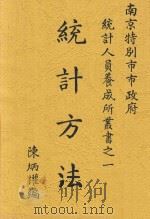 南京特別市市政府
統計人員養成所叢書之一
統計方法
陳炳權編